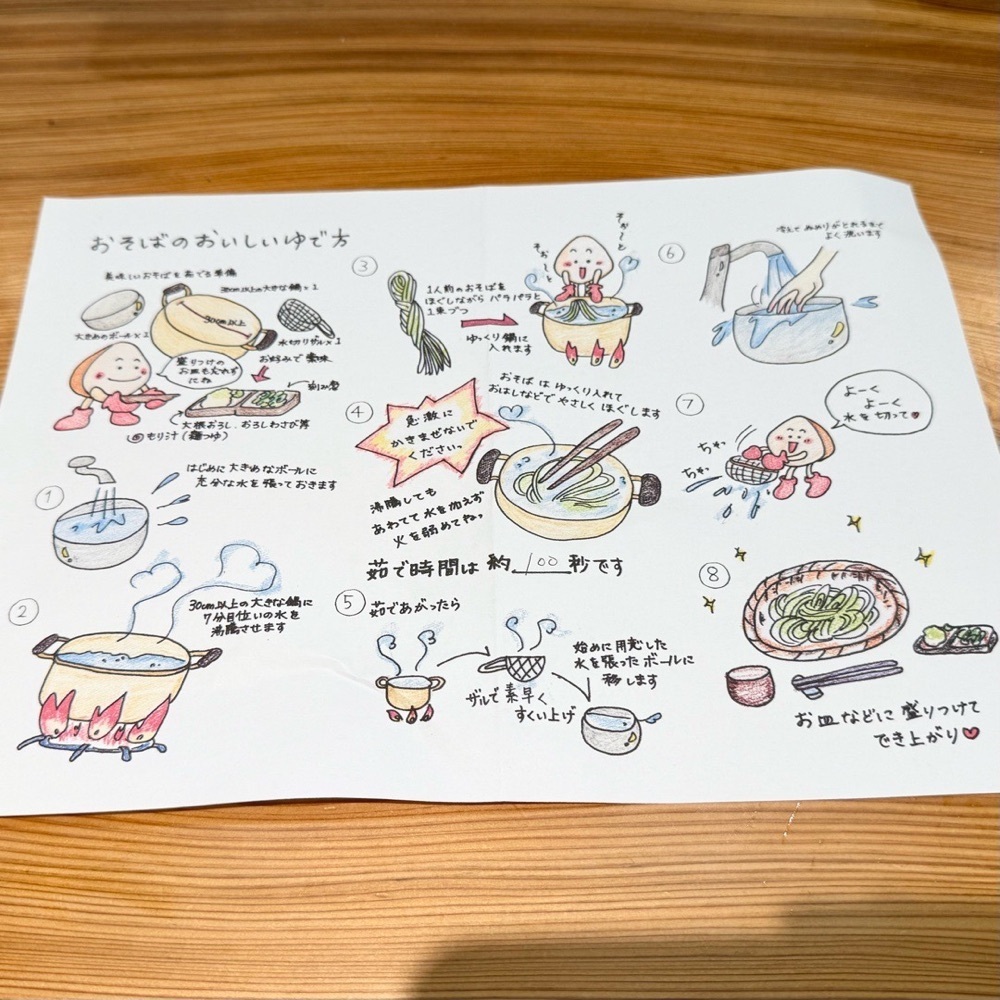 おそばのおいしいゆで方
美味しいおそばを茹でる準備
30cm以上の大きな鍋×1
30cm以上
大きめのボール×1
水切りザル×1
盛りつけの
お皿も忘れず
にね
お好みで薬味
刻み葱
大根おろし、おろしわさび等
もり汁(麺つゆ)
①
はじめに大きめなボールに
充分な水を張っておきます
②
30cm以上の大きな鍋に
7分目位いの水を
沸騰させます
③
1人前のおそばを
ほぐしながら パラパラと
1束づつ
ゆっくり鍋に
入れます
そお〜と
そお〜と
④
急激に
かきまぜないで
くださいっ
おそばは ゆっくり入れて
おはしなどで やさしく ほぐします
沸騰しても
あわてて水を加えず
火を弱めてねっ
茹で時間は 約 100 秒です
⑤
茹であがったら
ザルで素早く
すくい上げ
始めに用意した
水を張ったボールに
移します
⑥
冷えて ぬめりがとれるまで
よく洗います
⑦
よーく
よーく
水を切って♥
⑧
お皿などに 盛りつけて
でき上がり♥